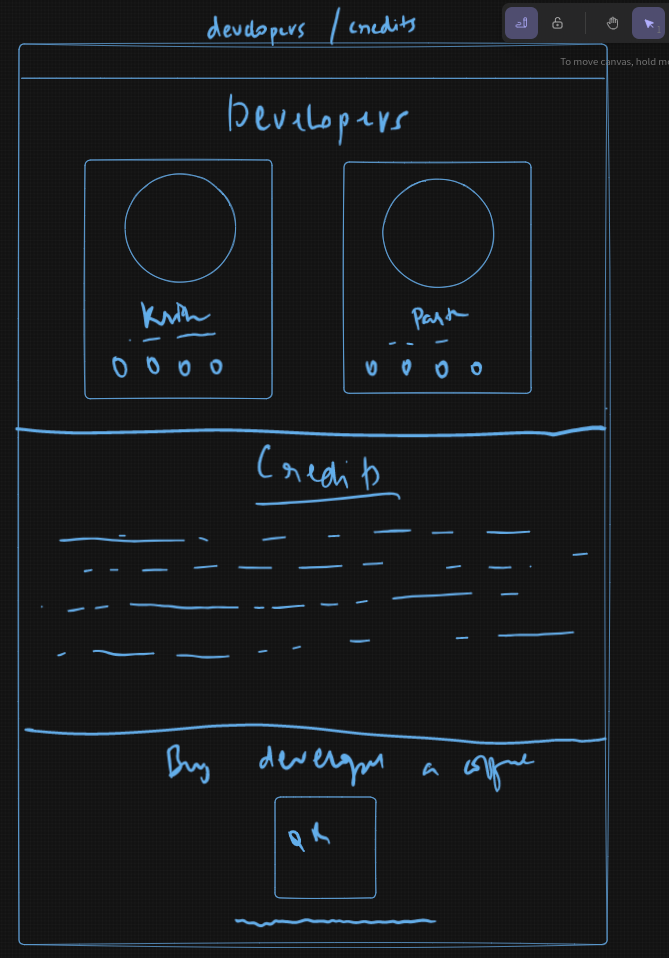 developers / credits
To move canvas, hold m
Developers
Krish Parth
Credits
Buy developer a coffee
QR